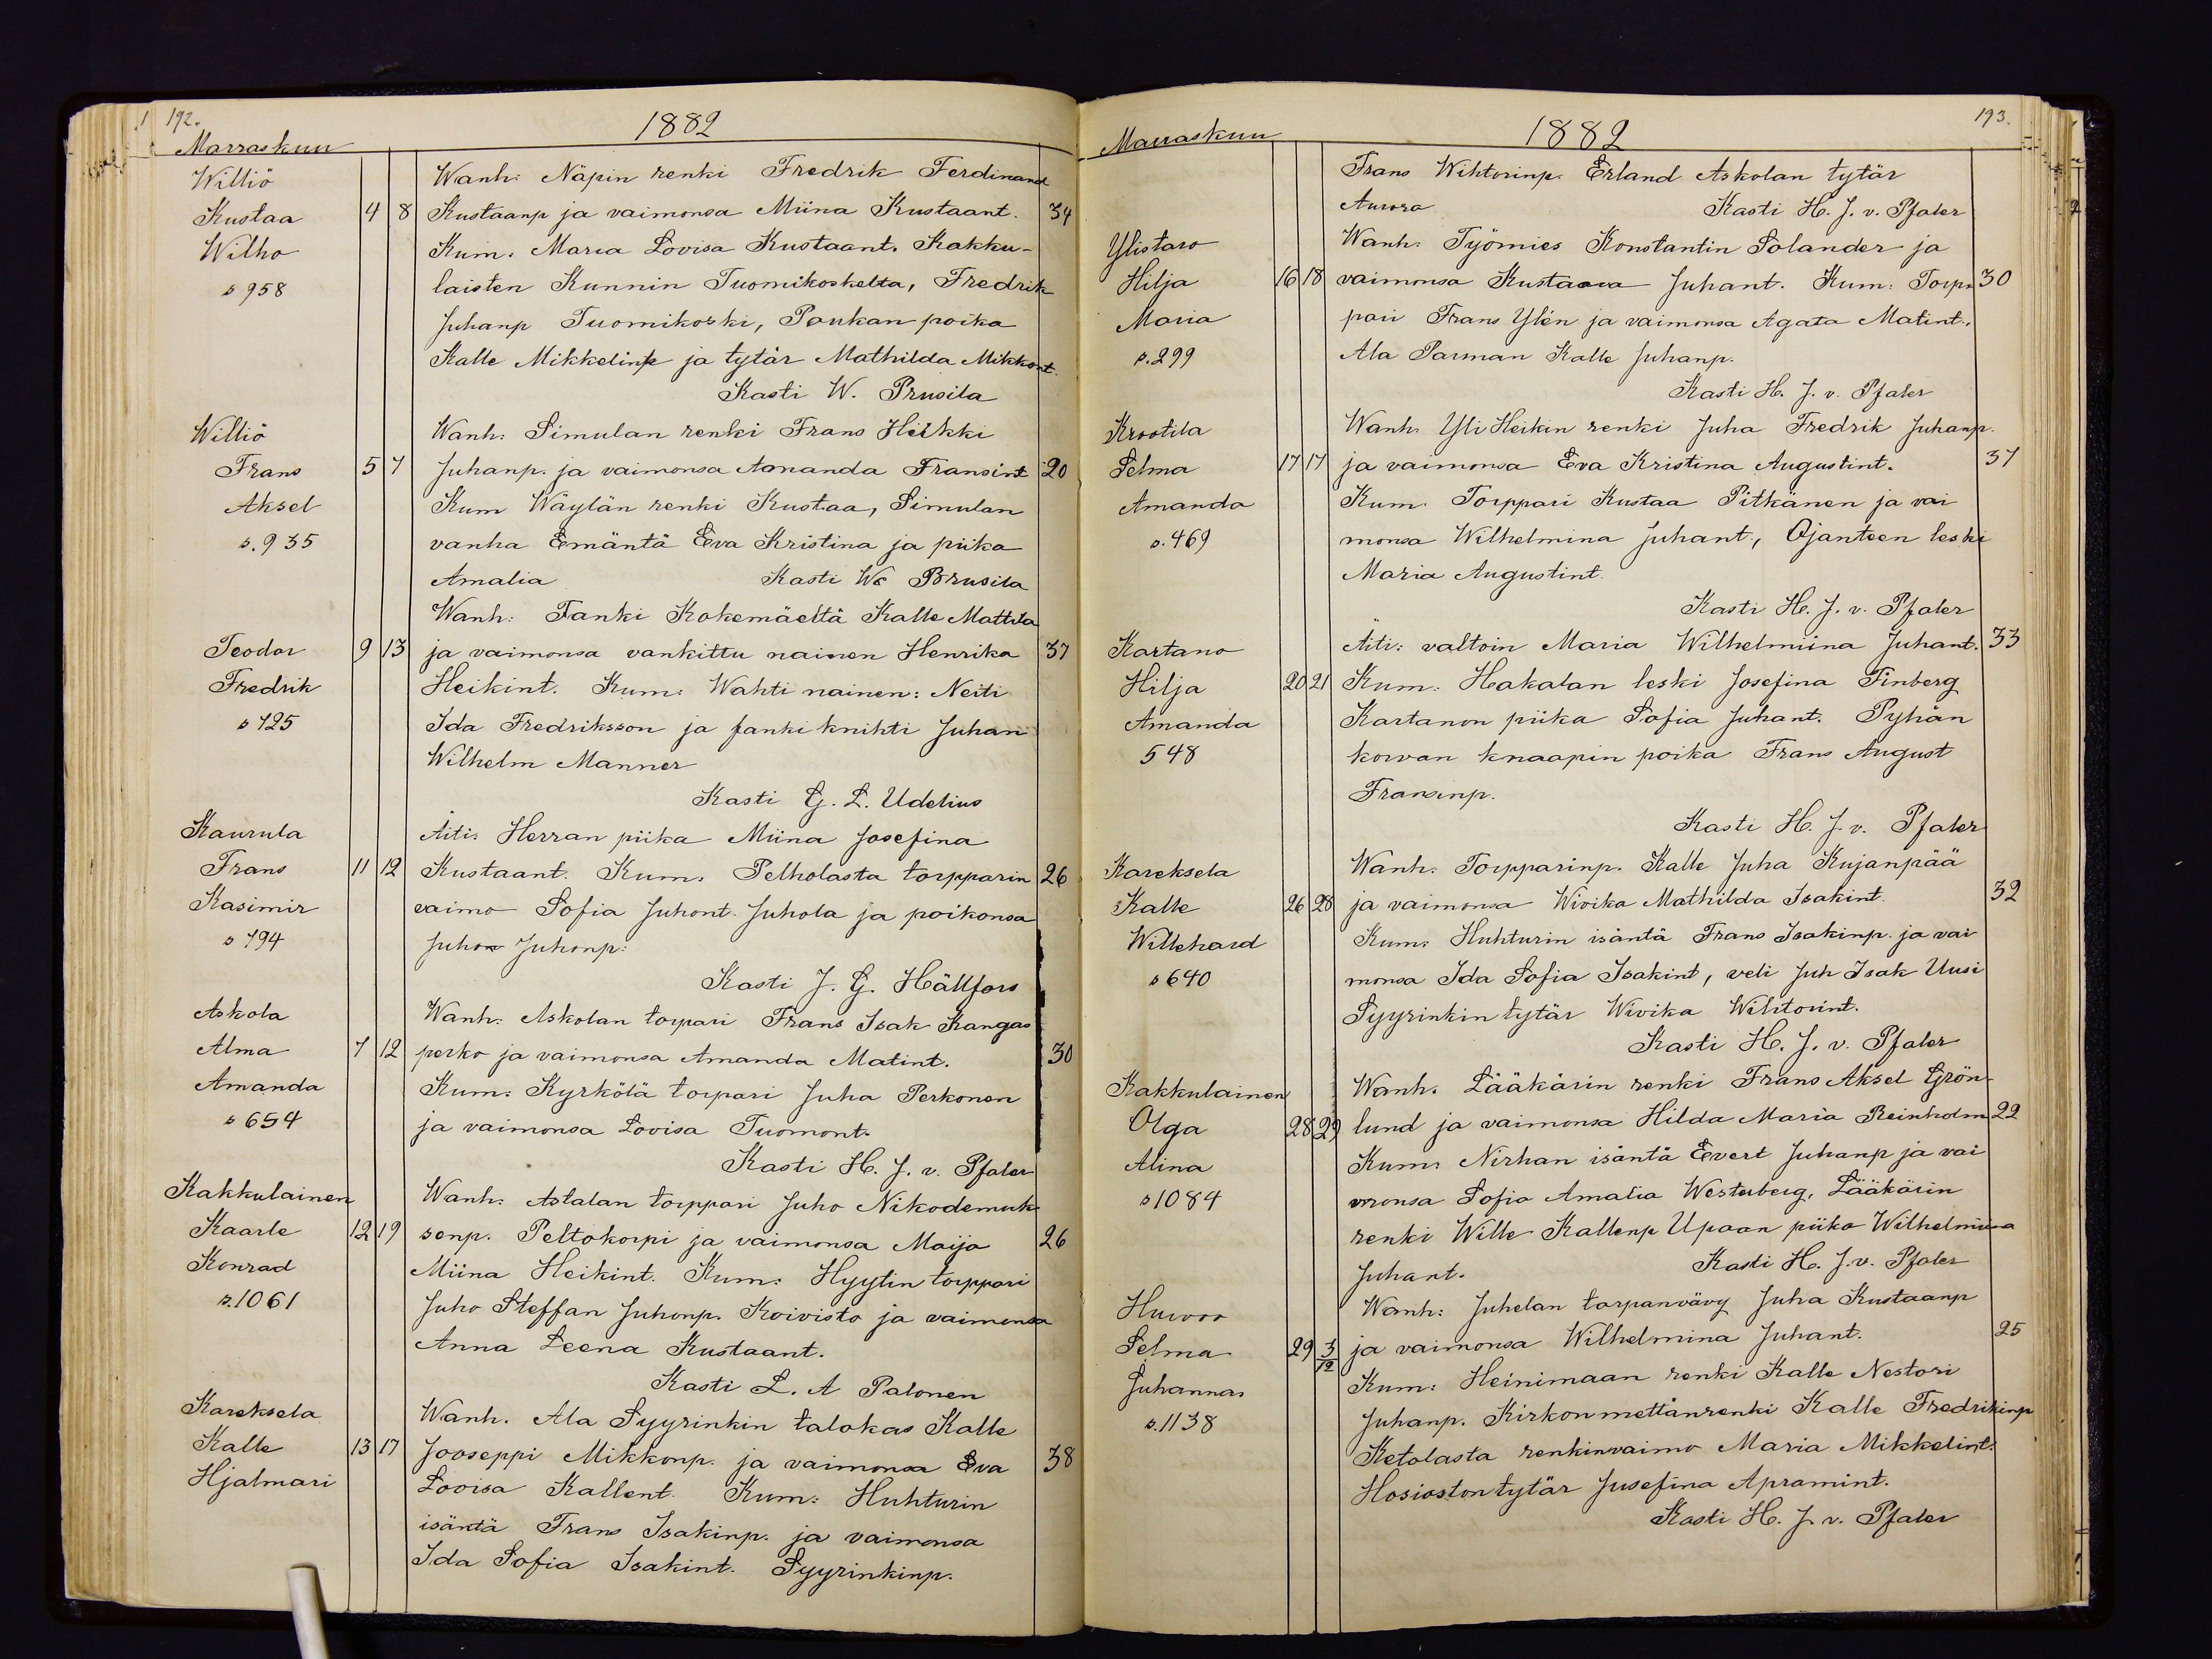 192.
1882
Marraskuu
Williö
Wanh: Näpin renki Fredrik Ferdinand
Kustaa 4 8 Kustaanp ja vaimonsa Miina Kustaant. 34
Wilho
Kum. Maria Lovisa Kustaant. Kakku-
s 958
laisten Kunnin Tuomikoskelta, Fredrik
Juhanp Tuomikoski, Paukan poika
Kalle Mikkelinp ja tytär Mathilda Mikkont.
Kasti W. Brusila
Williö
Wanh: Simulan renki Frans Heikki
Frans 5 7 Juhanp. ja vaimonsa Amanda Fransint 20
Aksel
Kum Wäylän renki Kustaa, Simulan
s. 935
vanha Emäntä Eva Kristina ja piika
Amalia Kasti W. Brusila
Wanh: Fanki Kokemäeltä Kalle Mattila
Teodor 9 13 ja vaimonsa vankittu nainen Henrika 37
Fredrik
Heikint. Kum: Wahti nainen: Neiti
s 725
Ida Fredriksson ja fanki knihti Juhan
Wilhelm Manner
Kasti G. L. Udelius
Kaurula
Äiti: Herran piika Miina Josefina
Frans 11 12 Kustaant. Kum. Pelholasta torpparin 26
Kasimir
vaimo Sofia Juhont. Juhola ja poikonsa
s 794
Juhon Juhonp:
Kasti J. G. Hällfors
Askola
Wanh: Askolan torpari Frans Isak Kangas
Alma 7 12 perko ja vaimonsa Amanda Matint. 30
Amanda
Kum. Kyrkölä torpari Juha Perkonen
s 654
ja vaimonsa Lovisa Tuomont.
Kasti H. J. v. Pfaler
Kakkulainen
Wanh: Astalan torppari Juho Nikodemuk
Kaarle 12 19 senp. Peltokorpi ja vaimonsa Maija 26
Konrad
Miina Heikint. Kum: Hyytin torppari
s. 1061
Juho Steffan Juhonp. Koivisto ja vaimonsa
Anna Leena Kustaant.
Kasti L. A Palonen
Kareksela
Wanh. Ala Syyrinkin talokas Kalle
Kalle 13 17 Jooseppi Mikkonp. ja vaimonsa Eva 38
Hjalmari
Lovisa Kallent. Kum: Huhturin
isäntä Frans Isakinp. ja vaimonsa
Ida Sofia Isakint. Syyrinkinp.
193.
1882
Marraskuu
Frans Wihtorinp. Erland Askolan tytär
Aurora Kasti H. J. v. Pfaler
Ylistaro
Wanh: Työmies Konstantin Solander ja
Hilja 16 18 vaimonsa Kustaava Juhant. Kum: Torp 30
Maria
pari Frans Ylén ja vaimonsa Agata Matint.,
s. 299
Ala Parman Kalle Juhanp.
Kasti H. J. v. Pfaler
Krootila
Wanh. Yli Heikin renki Juha Fredrik Juhanp.
Selma 17 17 ja vaimonsa Eva Kristina Augustint. 37
Amanda
Kum. Torppari Kustaa Pitkänen ja vai
s. 469
monsa Wilhelmina Juhant., Ojanteen leski
Maria Augustint.
Kasti H. J. v. Pfaler
Kartano
Äiti: valtoin Maria Wilhelmiina Juhant. 33
Hilja 20 21 Kum. Hakalan leski Josefina Finberg
Amanda
Kartanon piika Sofia Juhant. Pyhän
548
korvan knaapin poika Frans August
Fransinp.
Kasti H. J. v. Pfaler
Kareksela
Wanh. Torpparinp. Kalle Juha Kujanpää
Kalle 26 28 ja vaimonsa Wivika Mathilda Isakint. 32
Willehard
Kum: Huhturin isäntä Frans Isakinp. ja vai
s 640
monsa Ida Sofia Isakint, veli Juh Isak Uusi
Syyrinkin tytär Wivika Wihtorint.
Kasti H. J. v. Pfaler
Kakkulainen
Wanh. Lääkärin renki Frans Aksel Grön-
Olga 28 29 lund ja vaimonsa Hilda Maria Reinholm 22
Alina
Kum: Nirhan isäntä Evert Juhanp ja vai
s 1084
monsa Sofia Amalia Westerberg, Lääkärin
renki Wille Kallenp Upaan piika Wilhelmiina
Juhant. Kasti H. J. v. Pfaler
Huvoo
Wanh: Juhelan torpanvävy Juha Kustaanp
Selma 29 3/12 ja vaimonsa Wilhelmina Juhant. 25
Juhannas
Kum: Heinimaan renki Kalle Nestori
s. 1138
Juhanp. Kirkonmettänrenki Kalle Fredrikinp
Ketolasta renkinvaimo Maria Mikkelint.
Hosiaston tytär Jusefina Apramint.
Kasti H. J. v. Pfaler